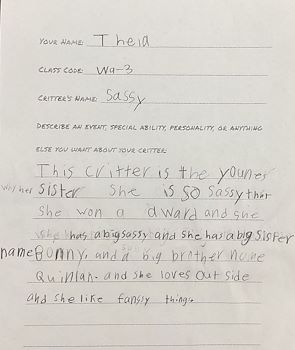 YOUR NAME: Theia
CLASS CODE: Wa-3
CRITTER'S NAME: Sassy
DESCRIBE AN EVENT, SPECIAL ABILITY, PERSONALITY, OR ANYTHING
ELSE YOU WANT ABOUT YOUR CRITTER:
This critter is the youner
sister She is so sassy that
she won a dward and she
has a big sassy and she has a big sister
name Bonny, and a big brother name
Quinlan. and she loves out side
and she like fansly things.